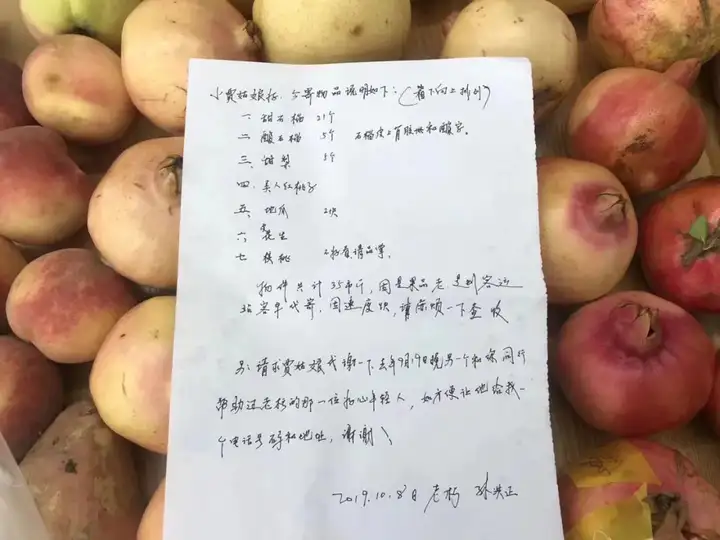 小贾姑娘好：今寄物品说明如下：（箱下向上排列）
一、甜石榴 21个
二、酸石榴 5个 石榴皮上有胶带和酸字。
三、甜梨 5个
四、美人红桃子
五、地瓜 2块
六、花生
七、核桃 请品尝。
物件共计35市斤，因是果品走是到客运
站客车代寄，因速度快，请您烦一下查收
另：请求贾姑娘代谢一下，去年9月19日晚另一个和你同行
帮助过老杨的那一位热心年轻人，如方便让她给我一
个电话号码和地址，谢谢！
2019.10.8日 老杨 洪正